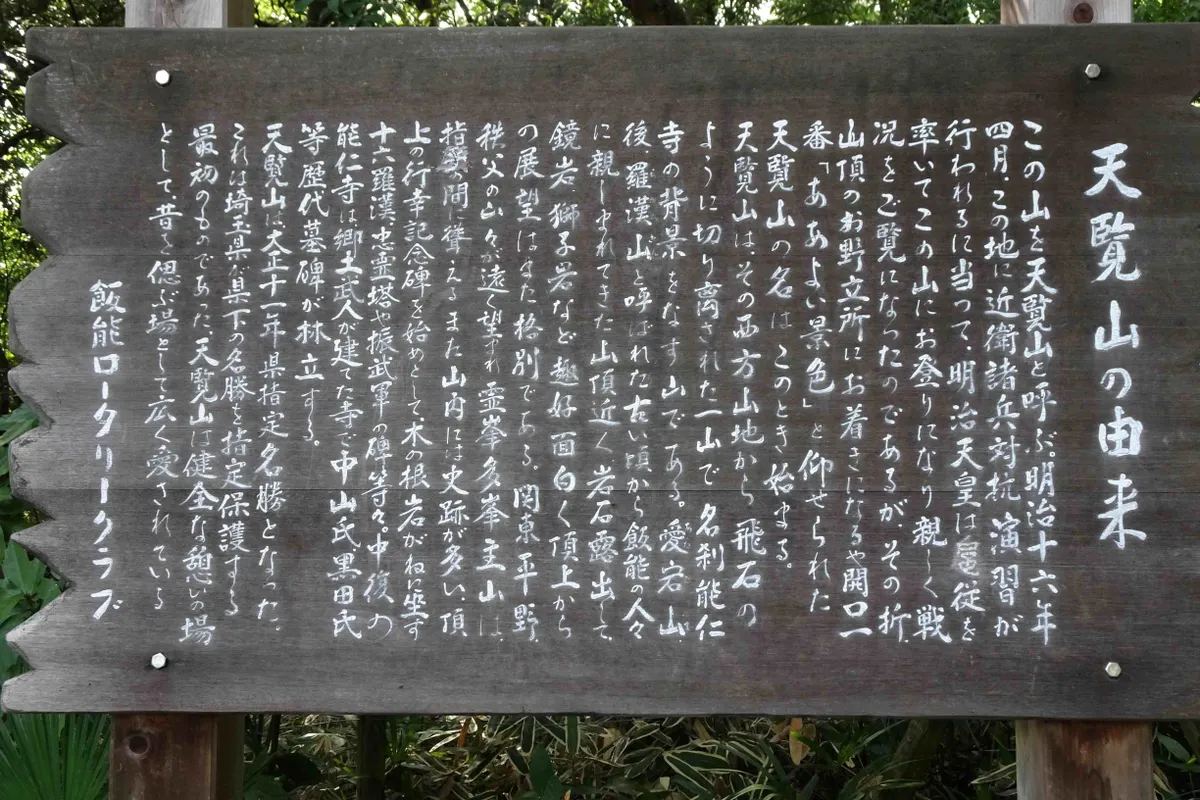 天覧山の由来
この山を天覧山と呼ぶ。明治十六年
四月、この地に近衛諸兵対抗演習が
行われるに当って、明治天皇は扈従を
率いてこの山にお登りになり親しく戦
況をご覧になったのであるが、その折、
山頂のお野立所にお着きになるや開口一
番「ああよい景色」と仰せられた
天覧山の名はこのとき始まる。
天覧山は、その西方山地から飛石の
ように切り離された一山で名刹能仁
寺の背景をなす山である。愛宕山、
後羅漢山と呼ばれた古い頃から飯能の人々
に親しまれてきた山頂近く岩石露出して、
鏡岩獅子岩など趣好面白く頂上から
の展望はまた格別である。関東平野、
秩父の山々が遠く望まれ霊峯多峯主山は、
指呼の間に聳えるまた山内には史跡が多い、頂
上の行幸記念碑を始めとして、木の根岩がねに坐す
十六羅漢、忠霊塔や振武軍の碑等々、中復の
能仁寺は郷土武人が建てた寺で中山氏、黒田氏
等歴代墓碑が林立する。
天覧山は大正十一年県指定名勝となった。
これは埼玉県が県下の名勝を指定保護する
最初のものであった、天覧山は健全な憩いの場
として、昔を偲ぶ場として広く愛されている
飯能ロータリークラブ